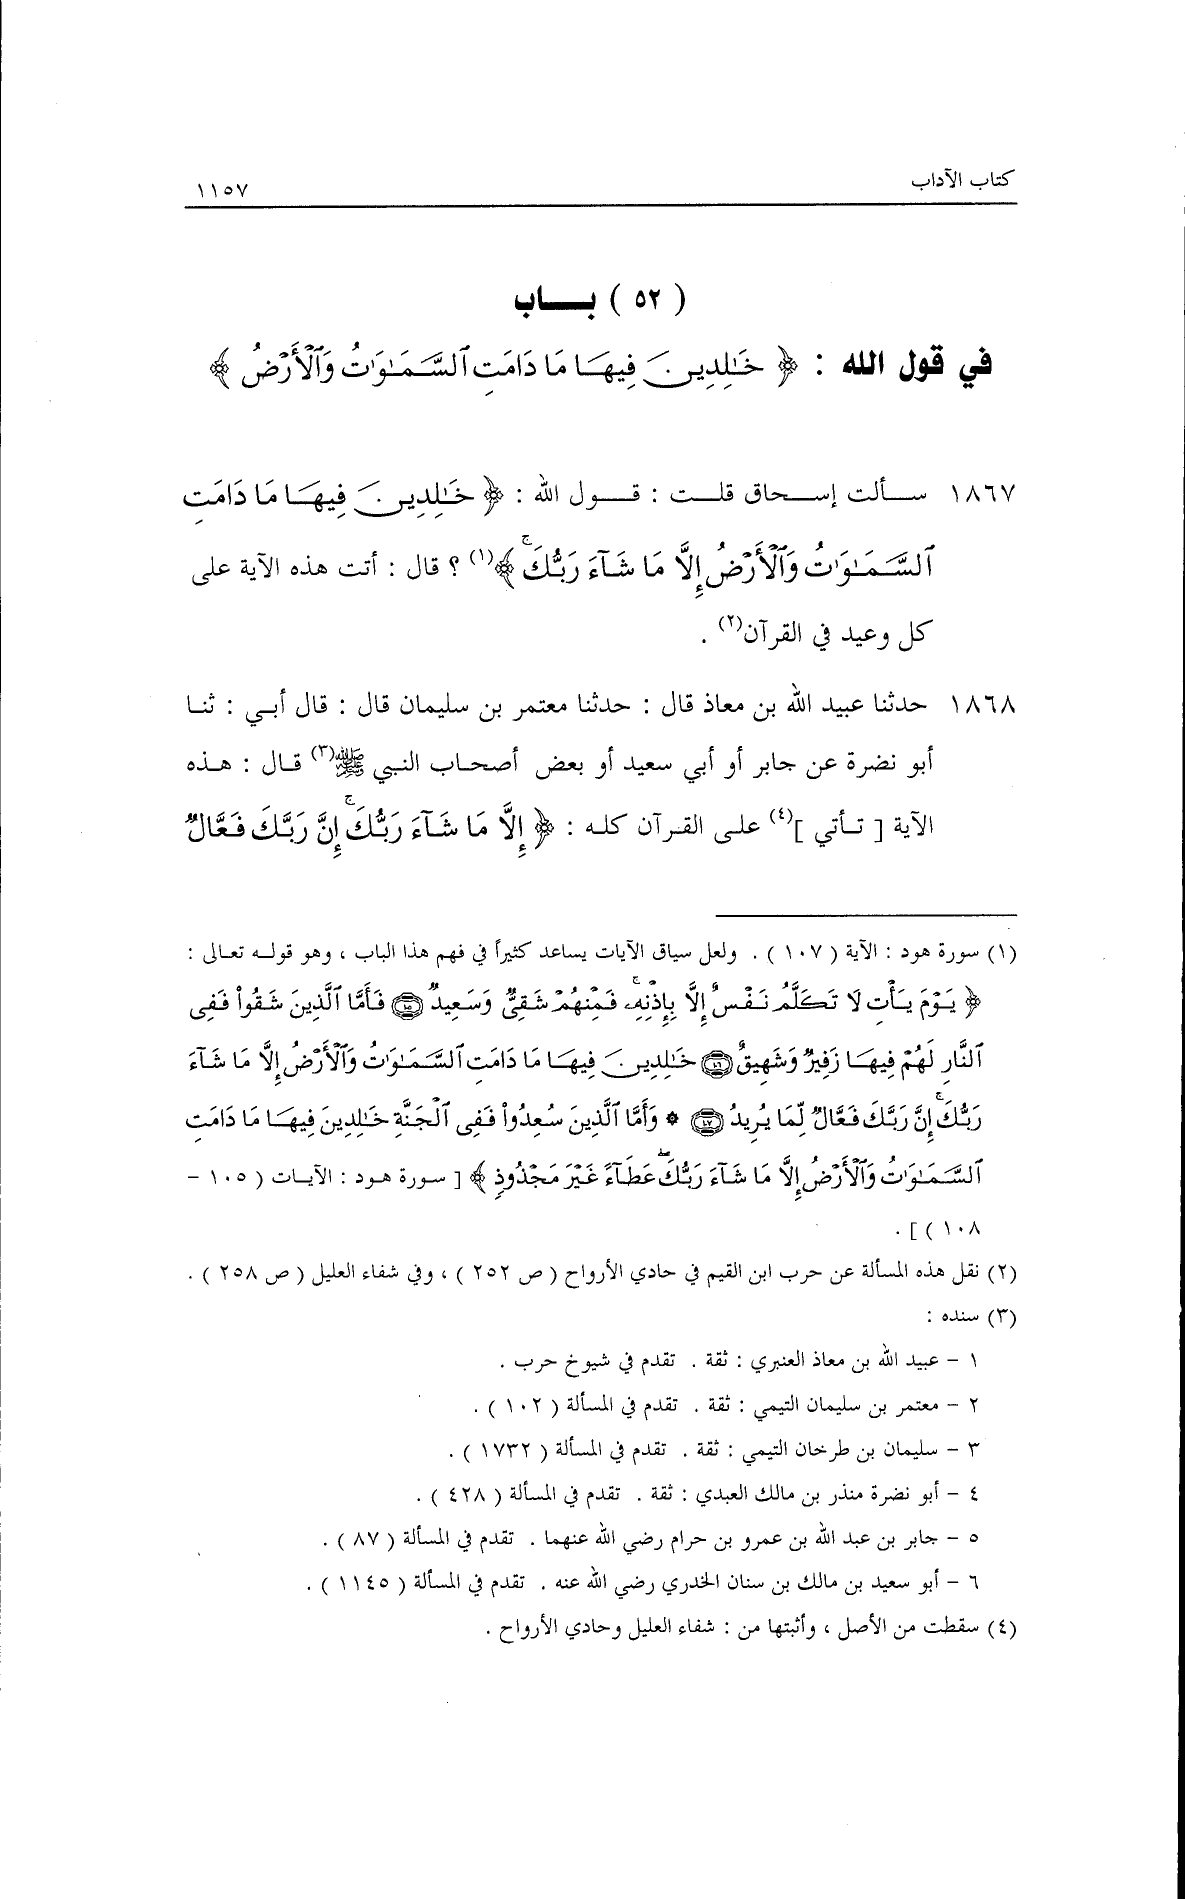 كتاب الآداب
١١٥٧
( ٥٢ ) بـــاب
في قول الله : ﴿ خَٰلِدِينَ فِيهَا مَا دَامَتِ ٱلسَّمَٰوَٰتُ وَٱلۡأَرۡضُ ﴾
١٨٦٧ سألت إسحاق قلت : قول الله : ﴿ خَٰلِدِينَ فِيهَا مَا دَامَتِ
ٱلسَّمَٰوَٰتُ وَٱلۡأَرۡضُ إِلَّا مَا شَآءَ رَبُّكَۚ ﴾(١) ؟ قال : أتت هذه الآية على
كل وعيد في القرآن(٢) .
١٨٦٨ حدثنا عبيد الله بن معاذ قال : حدثنا معتمر بن سليمان قال : قال أبي : ثنا
أبو نضرة عن جابر أو أبي سعيد أو بعض أصحاب النبي ﷺ(٣) قال : هذه
الآية [ تأتي ](٤) على القرآن كله : ﴿ إِلَّا مَا شَآءَ رَبُّكَۚ إِنَّ رَبَّكَ فَعَّالٞ
(١) سورة هود : الآية ( ١٠٧ ) . ولعل سياق الآيات يساعد كثيراً في فهم هذا الباب ، وهو قوله تعالى :
﴿ يَوۡمَ يَأۡتِ لَا تَكَلَّمُ نَفۡسٌ إِلَّا بِإِذۡنِهِۦۚ فَمِنۡهُمۡ شَقِيّٞ وَسَعِيدٞ ١٠٥ فَأَمَّا ٱلَّذِينَ شَقُواْ فَفِي
ٱلنَّارِ لَهُمۡ فِيهَا زَفِيرٞ وَشَهِيقٌ ١٠٦ خَٰلِدِينَ فِيهَا مَا دَامَتِ ٱلسَّمَٰوَٰتُ وَٱلۡأَرۡضُ إِلَّا مَا شَآءَ
رَبُّكَۚ إِنَّ رَبَّكَ فَعَّالٞ لِّمَا يُرِيدُ ١٠٧ * وَأَمَّا ٱلَّذِينَ سُعِدُواْ فَفِي ٱلۡجَنَّةِ خَٰلِدِينَ فِيهَا مَا دَامَتِ
ٱلسَّمَٰوَٰتُ وَٱلۡأَرۡضُ إِلَّا مَا شَآءَ رَبُّكَۖ عَطَآءً غَيۡرَ مَجۡذُوذٖ ﴾ [ سورة هود : الآيات ( ١٠٥ -
١٠٨ ) ] .
(٢) نقل هذه المسألة عن حرب ابن القيم في حادي الأرواح ( ص ٢٥٢ ) ، وفي شفاء العليل ( ص ٢٥٨ ) .
(٣) سنده :
١ - عبيد الله بن معاذ العنبري : ثقة . تقدم في شيوخ حرب .
٢ - معتمر بن سليمان التيمي : ثقة . تقدم في المسألة ( ١٠٢ ) .
٣ - سليمان بن طرخان التيمي : ثقة . تقدم في المسألة ( ١٧٣٢ ) .
٤ - أبو نضرة منذر بن مالك العبدي : ثقة . تقدم في المسألة ( ٤٢٨ ) .
٥ - جابر بن عبد الله بن عمرو بن حرام رضي الله عنهما . تقدم في المسألة ( ٨٧ ) .
٦ - أبو سعيد بن مالك بن سنان الخدري رضي الله عنه . تقدم في المسألة ( ١١٤٥ ) .
(٤) سقطت من الأصل ، وأثبتها من : شفاء العليل وحادي الأرواح .